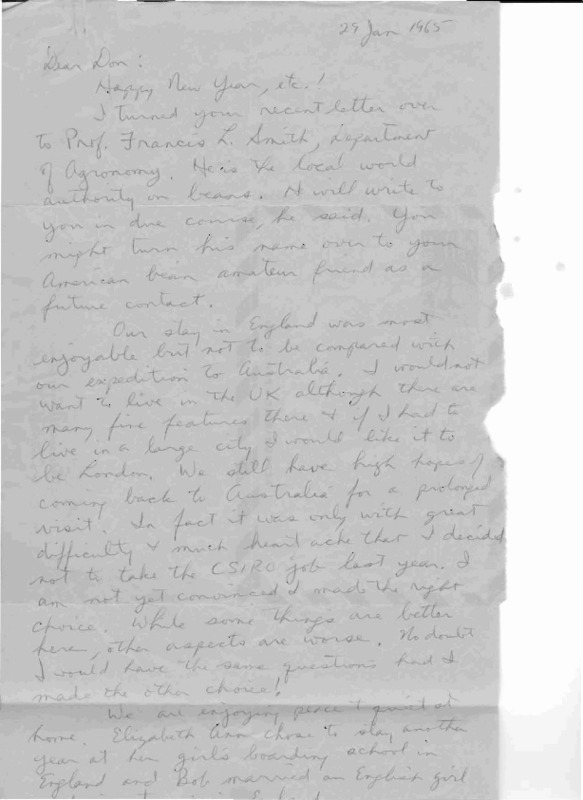 29 Jan 1965
Dear Don:
Happy New Year, etc.!
I turned your recent letter over
to Prof. Francis L. Smith, Department
of Agronomy. He is the local world
authority on beans. H will write to
you in due course, he said. You
might turn his name over to your
American bean amateur friend as a
future contact.
Our stay in England was most
enjoyable but not to be compared with
our expedition to Australia. I would not
want to live in the UK although there are
many fine features there & if I had to
live in a large city I would like it to
be London. We still have high hopes of
coming back to Australia for a prolonged
visit. In fact it was only with great
difficulty & much heart ache that I decided
not to take the CSIRO job last year. I
am not yet convinced I made the right
choice. While some things are better
here, other aspects are worse. No doubt
I would have the same questions had I
made the other choice!
We are enjoying peace & quiet at
home. Elizabeth Ann chose to stay another
year at her girls boarding school in
England and Bob married an English girl